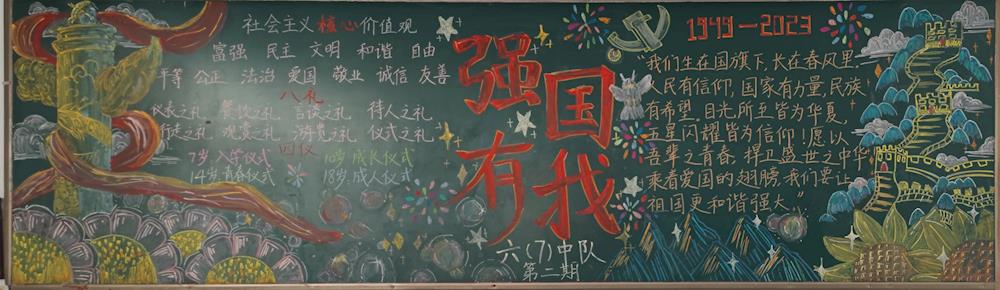 社会主义核心价值观
富强 民主 文明 和谐 自由
平等 公正 法治 爱国 敬业 诚信 友善
八礼
仪表之礼 餐饮之礼 言谈之礼 待人之礼
行走之礼 观赏之礼 游览之礼 仪式之礼
四仪
7岁入学仪式 10岁成长仪式
14岁青春仪式 18岁成人仪式
强国
有我
六(7)中队
第二期
1949—2023
“我们生在国旗下,长在春风里.
人民有信仰,国家有力量,民族
有希望.目光所至皆为华夏,
五星闪耀皆为信仰!愿以
吾辈之青春.捍卫盛世之中华
乘着爱国的翅膀,我们要让
祖国更和谐强大。”